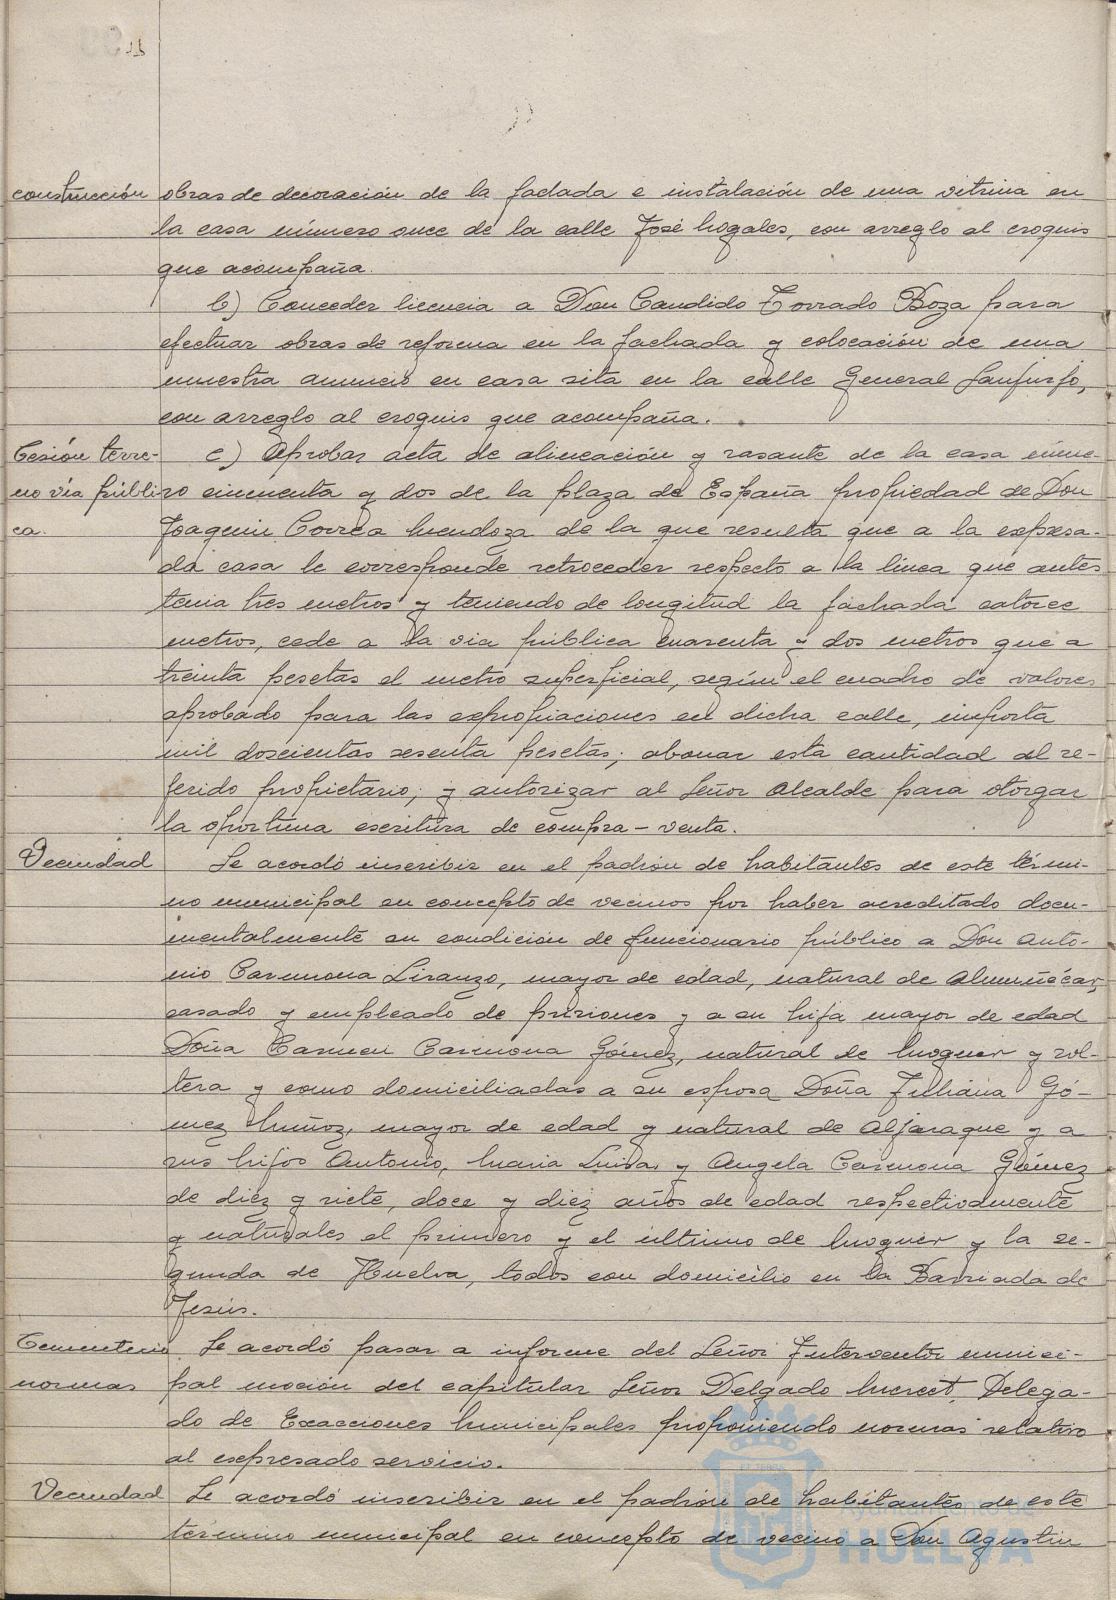 construcción obras de decoración de la fachada e instalación de una vitrina en
la casa número once de la calle José Nogales, con arreglo al croquis
que acompaña.
b) Conceder licencia a Don Candido Torrado Boza para
efectuar obras de reforma en la fachada y colocación de una
muestra anuncio en casa sita en la calle General Sanjurjo,
con arreglo al croquis que acompaña.
Cesión terre- c) Aprobar acta de alineación y rasante de la casa núme-
no vía públi- ro cincuenta y dos de la plaza de España propiedad de Don
ca. Joaquin Correa Mendoza de la que resulta que a la expresa-
da casa le corresponde retroceder respecto a la linea que antes
tenia tres metros y teniendo de longitud la fachada catorce
metros, cede a la via pública cuarenta y dos metros que a
treinta pesetas el metro superficial, según el cuadro de valores
aprobado para las expropiaciones en dicha calle, importa
mil doscientas sesenta pesetas; abonar esta cantidad al re-
ferido propietario; y autorizar al Señor Alcalde para otorgar
la oportuna escritura de compra-venta.
Vecindad Se acordó inscribir en el padrón de habitantes de este térmi-
no municipal en concepto de vecinos por haber acreditado docu-
mentalmente su condición de funcionario público a Don Anto-
nio Carmona Liranzo, mayor de edad, natural de Almuñécar,
casado y empleado de prisiones y a su hija mayor de edad
Doña Carmen Carmona Gómez, natural de Moguer y sol-
tera y como domiciliadas a su esposa Doña Juliana Gó-
mez Muñoz, mayor de edad y natural de Aljaraque y a
sus hijos Antonio, Maria Luisa y Angela Carmona Gómez
de diez y siete, doce y diez años de edad respectivamente
y naturales el primero y el último de Moguer y la se-
gunda de Huelva, todos con domicilio en la Barriada de
Jesús.
Cementerio Se acordó pasar a informe del Señor Interventor munici-
normas pal moción del capitular Señor Delgado Delega-
do de Exacciones Municipales proponiendo normas relativo
al expresado servicio.
Vecindad Se acordó inscribir en el padrón de habitantes de este
término municipal en concepto de vecino a Don Agustin
Ayuntamiento de
HUELVA